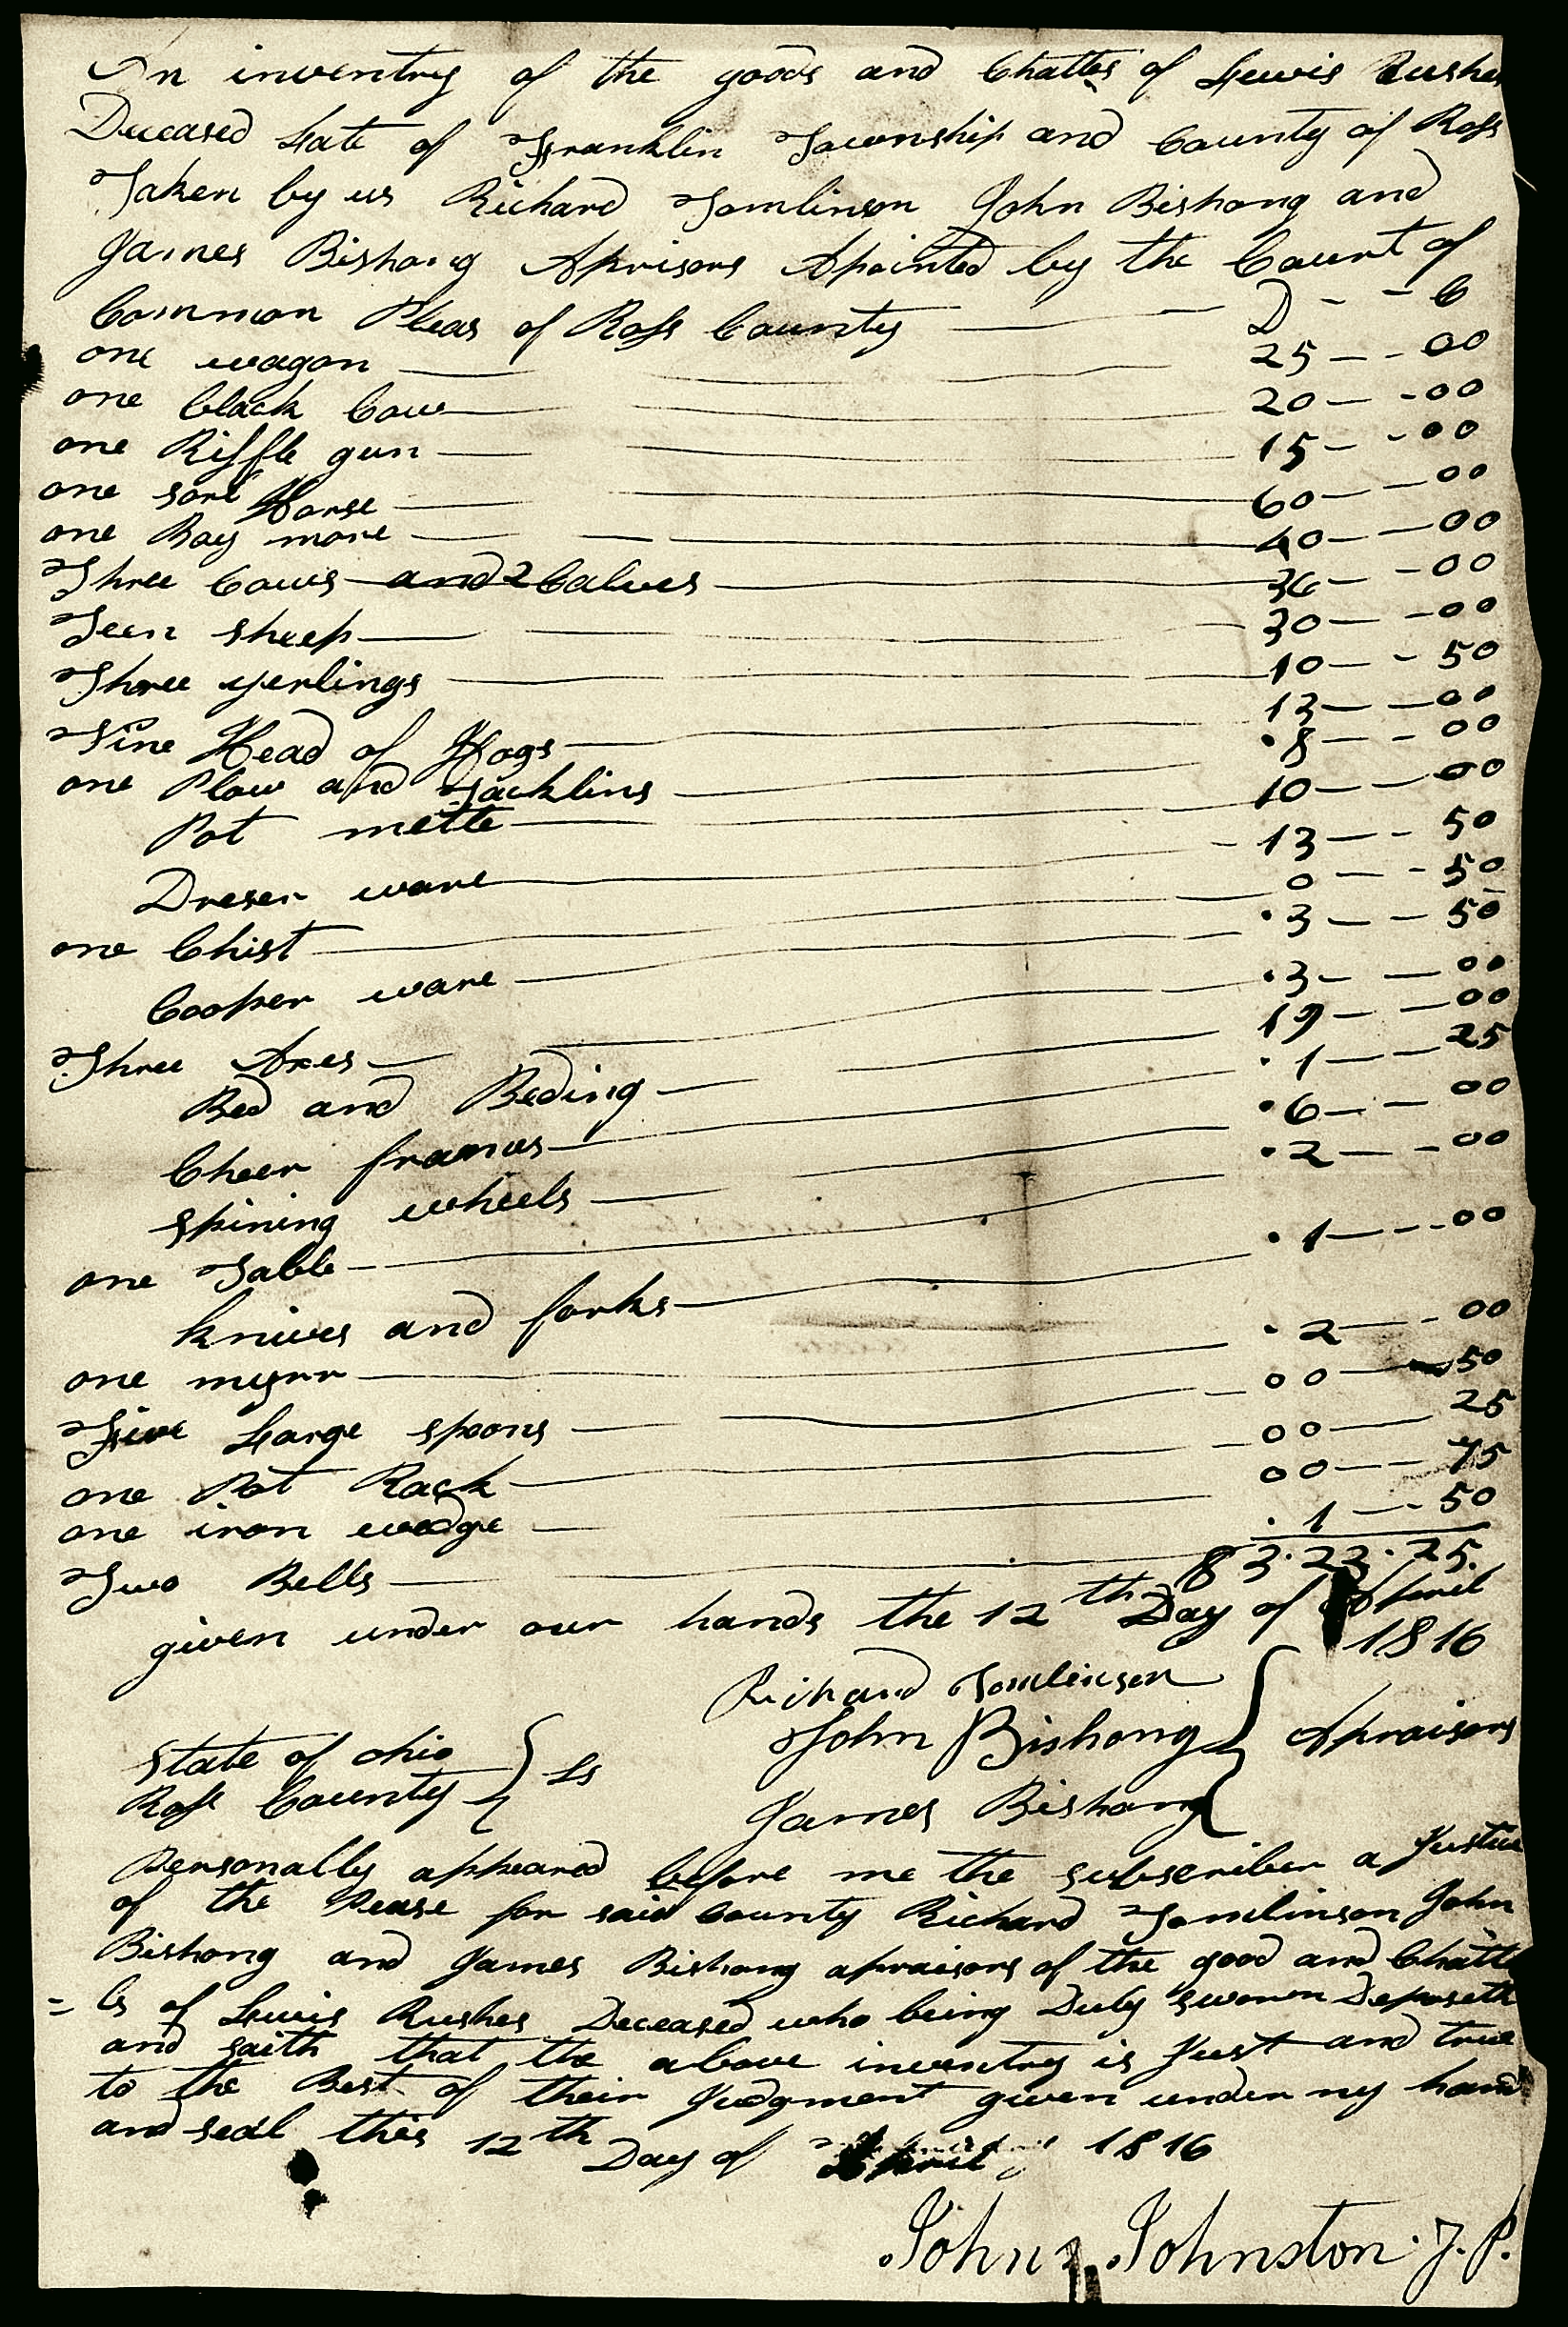 An inventry of the goods and Chattes of Lewis Rushes
Deceased Late of Franklin Township and County of Ross
Taken by us Richard Tomlinson John Bishong and
James Bishong Aprisors Apointed by the Court of
Common Pleas of Ross County D - - C
one wagon 25 - - 00
one black Cow 20 - - 00
one Riffle gun 15 - - 00
one sorl Horse 60 - - 00
one Bay mare 40 - - 00
Three Cows and 2 Calves 36 - - 00
Teen sheep 30 - - 00
Three yerlings 10 - - 50
Nine Head of Hogs 13 - - 00
one Plow and Tacklins 8 - - 00
Pot mettle 10 - - 00
Dreser ware 13 - - 50
one Chist 0 - - 50
Cooper ware 3 - - 50
Three Axes 3 - - 00
Bed and Beding 19 - - 00
Cheer frames 1 - - 25
spining wheels 6 - - 00
one Table 2 - - 00
knives and forks 1 - - 00
one myrr 2 - - 00
Five Large spoons 00 - 50
one Pot Rack 00 - 25
one iron wedge 00 - - 75
Two Bells 1 - - 50
$ 3.23.25.
given under our hands the 12th Day of April
1816
Richard Tomlinson
John Bishong Apraisors
James Bishong
State of ohio
Ross County } Ss
Personally appeared before me the subscriber a Justice
of the Pease for said County Richard Tomlinson John
Bishong and James Bishong apraisors of the good and Chatt
= ls of Lewis Rushes Deceased who being Duly sworn Deposeth
and saith that the above inventry is Just and true
to the Best of their Judgment given under my hand
and seal this 12th Day of April 1816
John Johnston J. P.